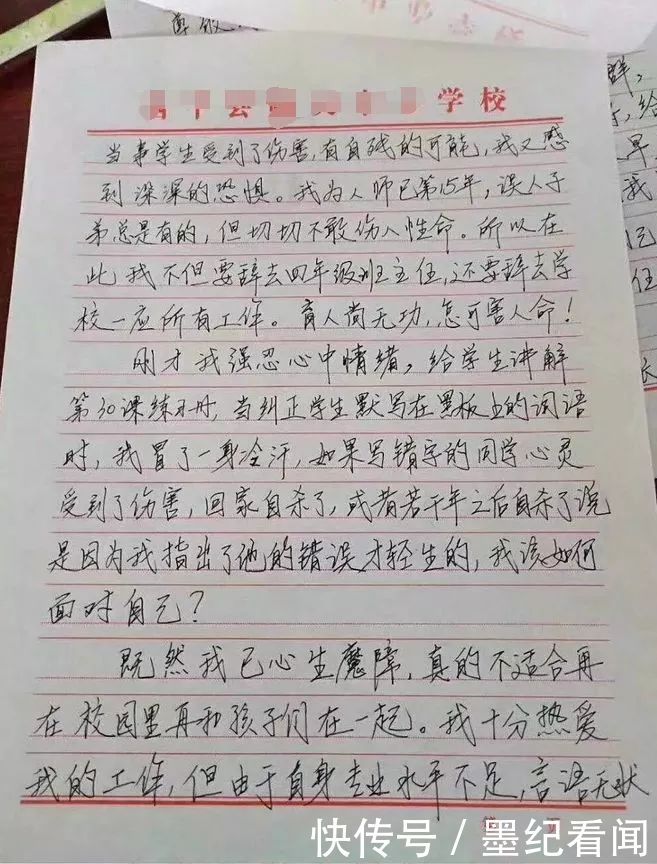 学校
当事学生受到了伤害,有自残的可能,我又感
到深深的恐惧。我为人师已第15年,误人子
弟总是有的,但切切不敢伤人性命。所以在
此,我不但要辞去四年级班主任,还要辞去学
校一应所有工作。育人尚无功,怎可害人命!
刚才我强忍心中情绪,给学生讲解
第30课练习册,当纠正学生默写在黑板上的词语
时,我冒了一身冷汗,如果写错字的同学心灵
受到了伤害,回家自杀了,或者若干年之后自杀了说
是因为我指出了他的错误才轻生的,我该如何
面对自己?
既然我已心生魔障,真的不适合再
在校园里再和孩子们在一起。我十分热爱
我的工作,但由于自身专业水平不足,言语无状
快传号/墨纪看闻